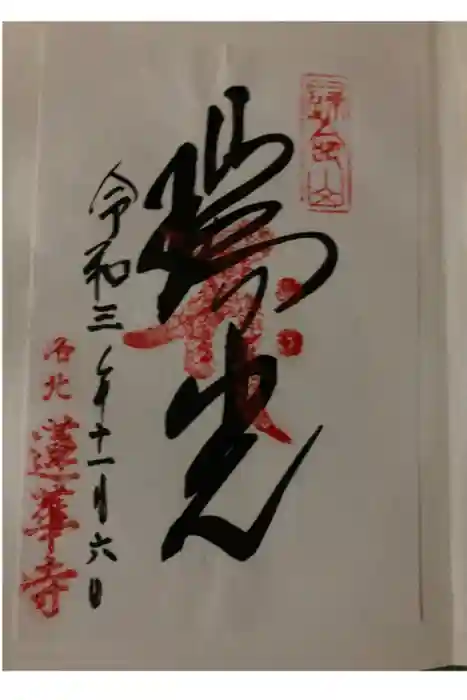 瑞光
令和三年十一月六日
名北
蓮華寺